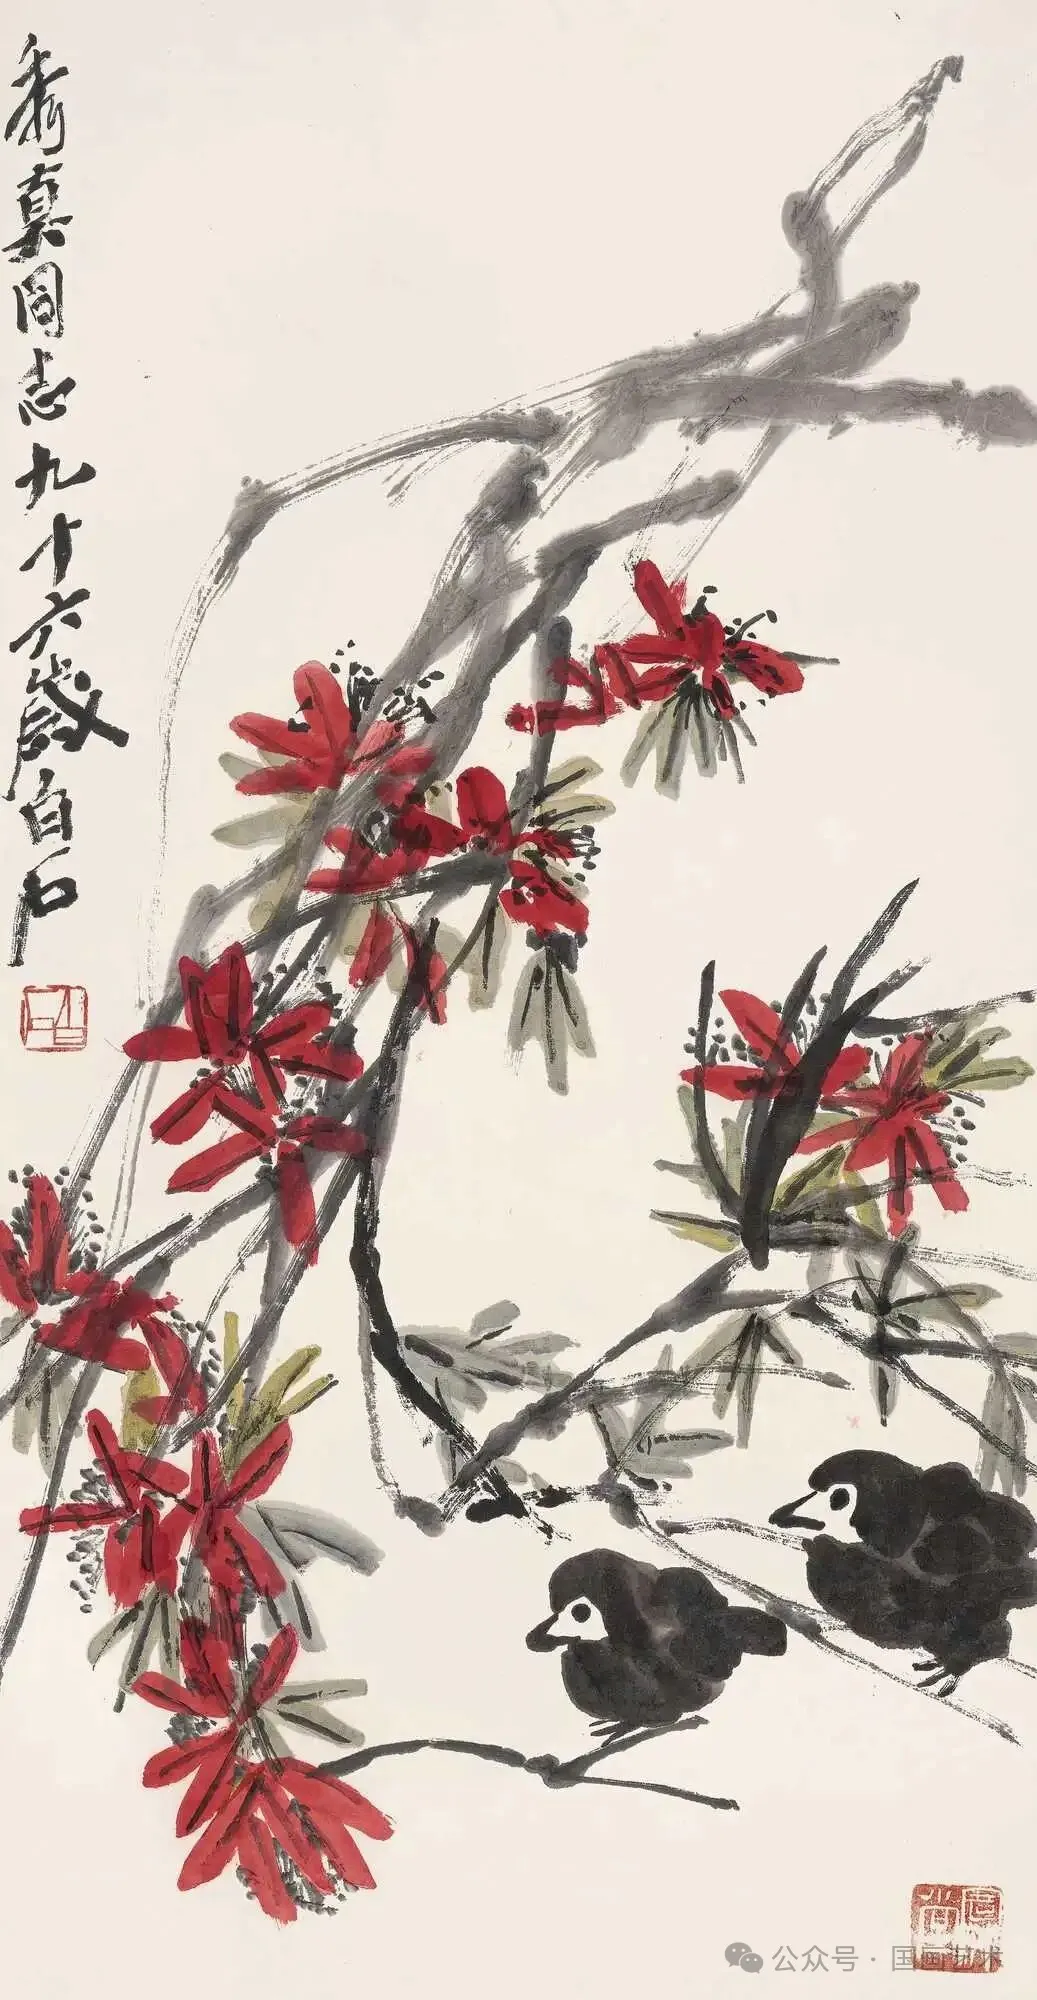 秀真同志九十六歲白石
公众号 · 国画艺术